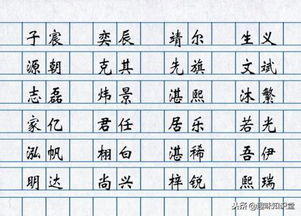 子宸 奕辰 靖尔 生义
源朝 克其 先旗 文斌
志磊 炜景 湛熙 沐繁
家亿 君任 居乐 若光
泓帆 栩白 湛稀 吾伊
明达 尚兴 梓锐 熙瑞
头条号/趣味知识堂